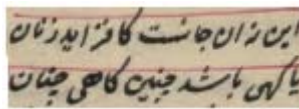 این زان جانست کافزاید زنان
یا کهی باشد چنین کاهی چنان